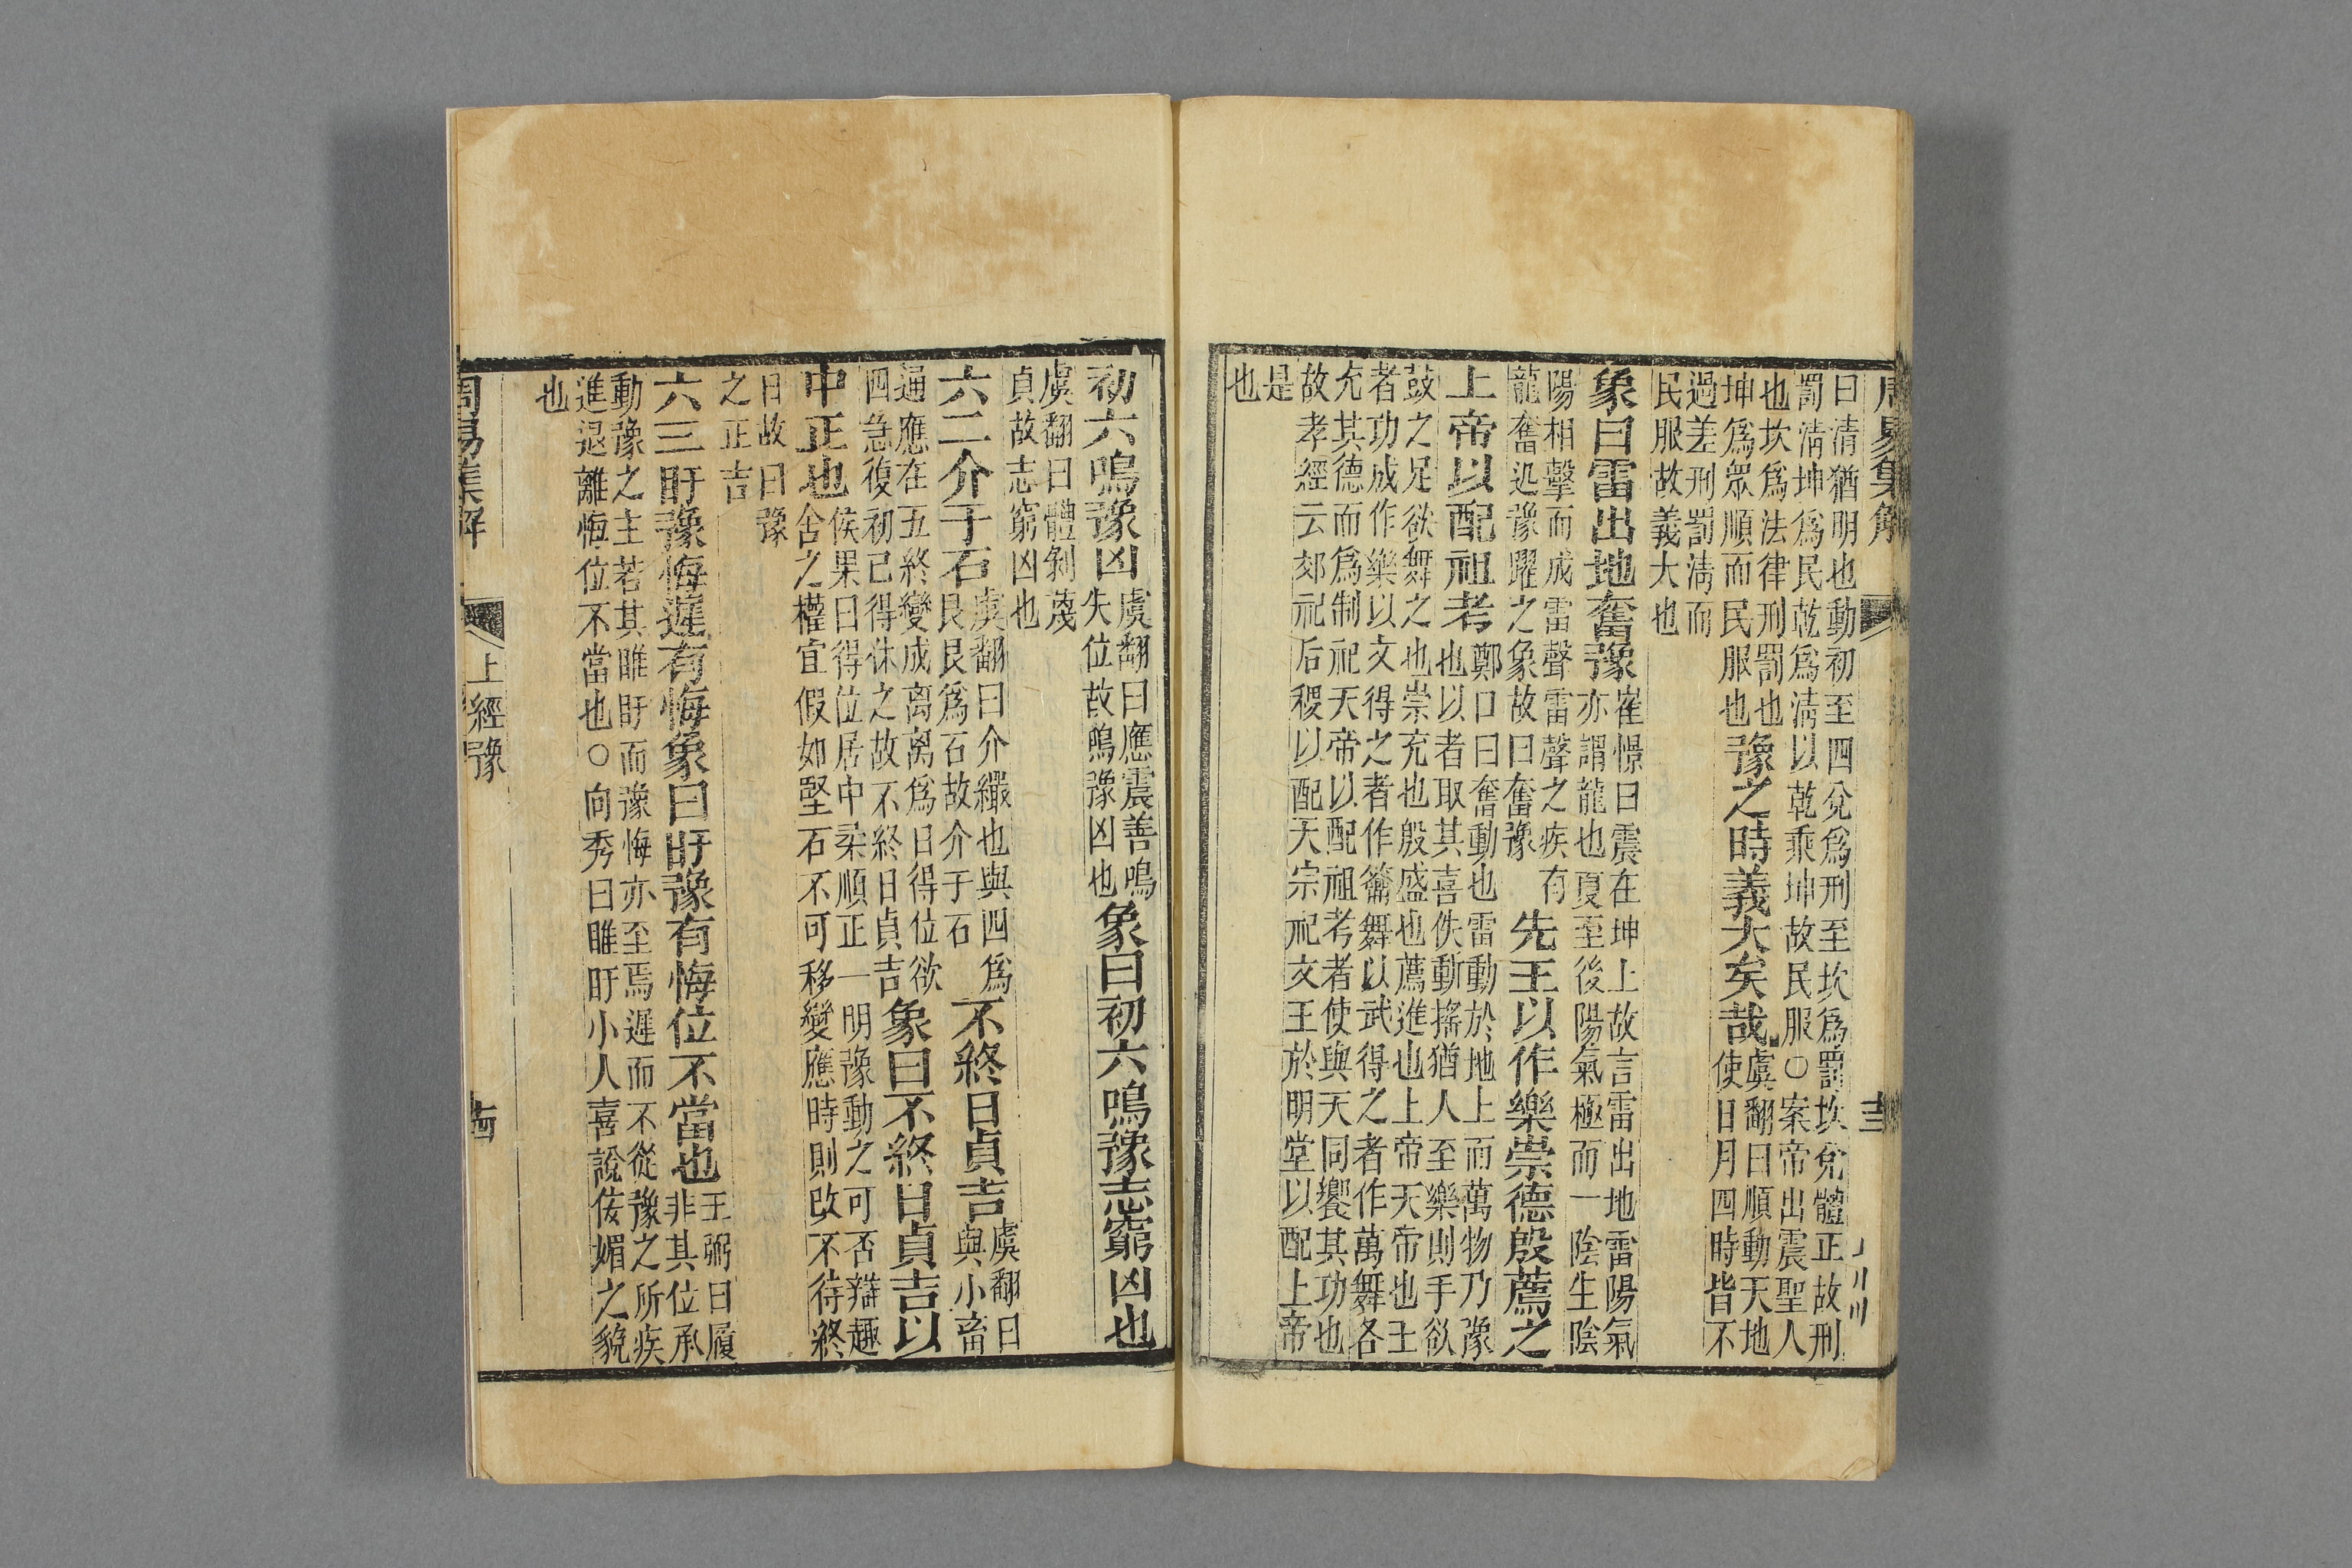 周易集解
曰清猶明也動初至四兌爲刑至坎爲罰坎兌體正故刑
罰清坤爲民乾爲清以乾乘坤故民服○案帝出震聖人
也坎爲法律刑罰也
坤爲眾順而民服也豫之時義大矣哉虞翻曰順動天地
使日月四時皆不
過差刑罰清而
民服故義大也
象曰雷出地奮豫崔憬曰震在坤上故言雷出地雷陽氣
亦謂龍也夏至後陽氣極而一陰生陰
陽相擊而成雷聲雷聲之疾有
龍奮迅豫躍之象故曰奮豫先王以作樂崇德殷薦之
上帝以配祖考鄭曰奮動也雷動於地上而萬物乃豫
也以者取其喜佚動搖猶人至樂則手欲
鼓之足欲舞之也崇充也殷盛也薦進也上帝天帝也王
者功成作樂以文得之者作籥舞以武得之者作萬舞各
充其德而爲制祀天帝以配祖考者使與天同饗其功也
故孝經云郊祀后稷以配天宗祀文王於明堂以配上帝
是
也
初六鳴豫凶虞翻曰應震善鳴
失位故鳴豫凶也象曰初六鳴豫志窮凶也
虞翻曰體剝蔑
貞故志窮凶也
六二介于石虞翻曰介纖也與四爲
艮艮爲石故介于石不終日貞吉虞翻曰
與小畜
通應在五終變成离离爲日得位欲
四急復初已得休之故不終日貞吉象曰不終日貞吉以
中正也侯果曰得位居中柔順正一明豫動之可否辯趣
舍之權宜假如堅石不可移變應時則改不待終
日故曰豫
之正吉
六三盱豫悔遲有悔象曰盱豫有悔位不當也王弼曰履
非其位承
動豫之主若其睢盱而豫悔亦至焉遲而不從豫之所疾
進退離悔位不當也○向秀曰睢盱小人喜說佞媚之貌
也
周易集解
上經豫